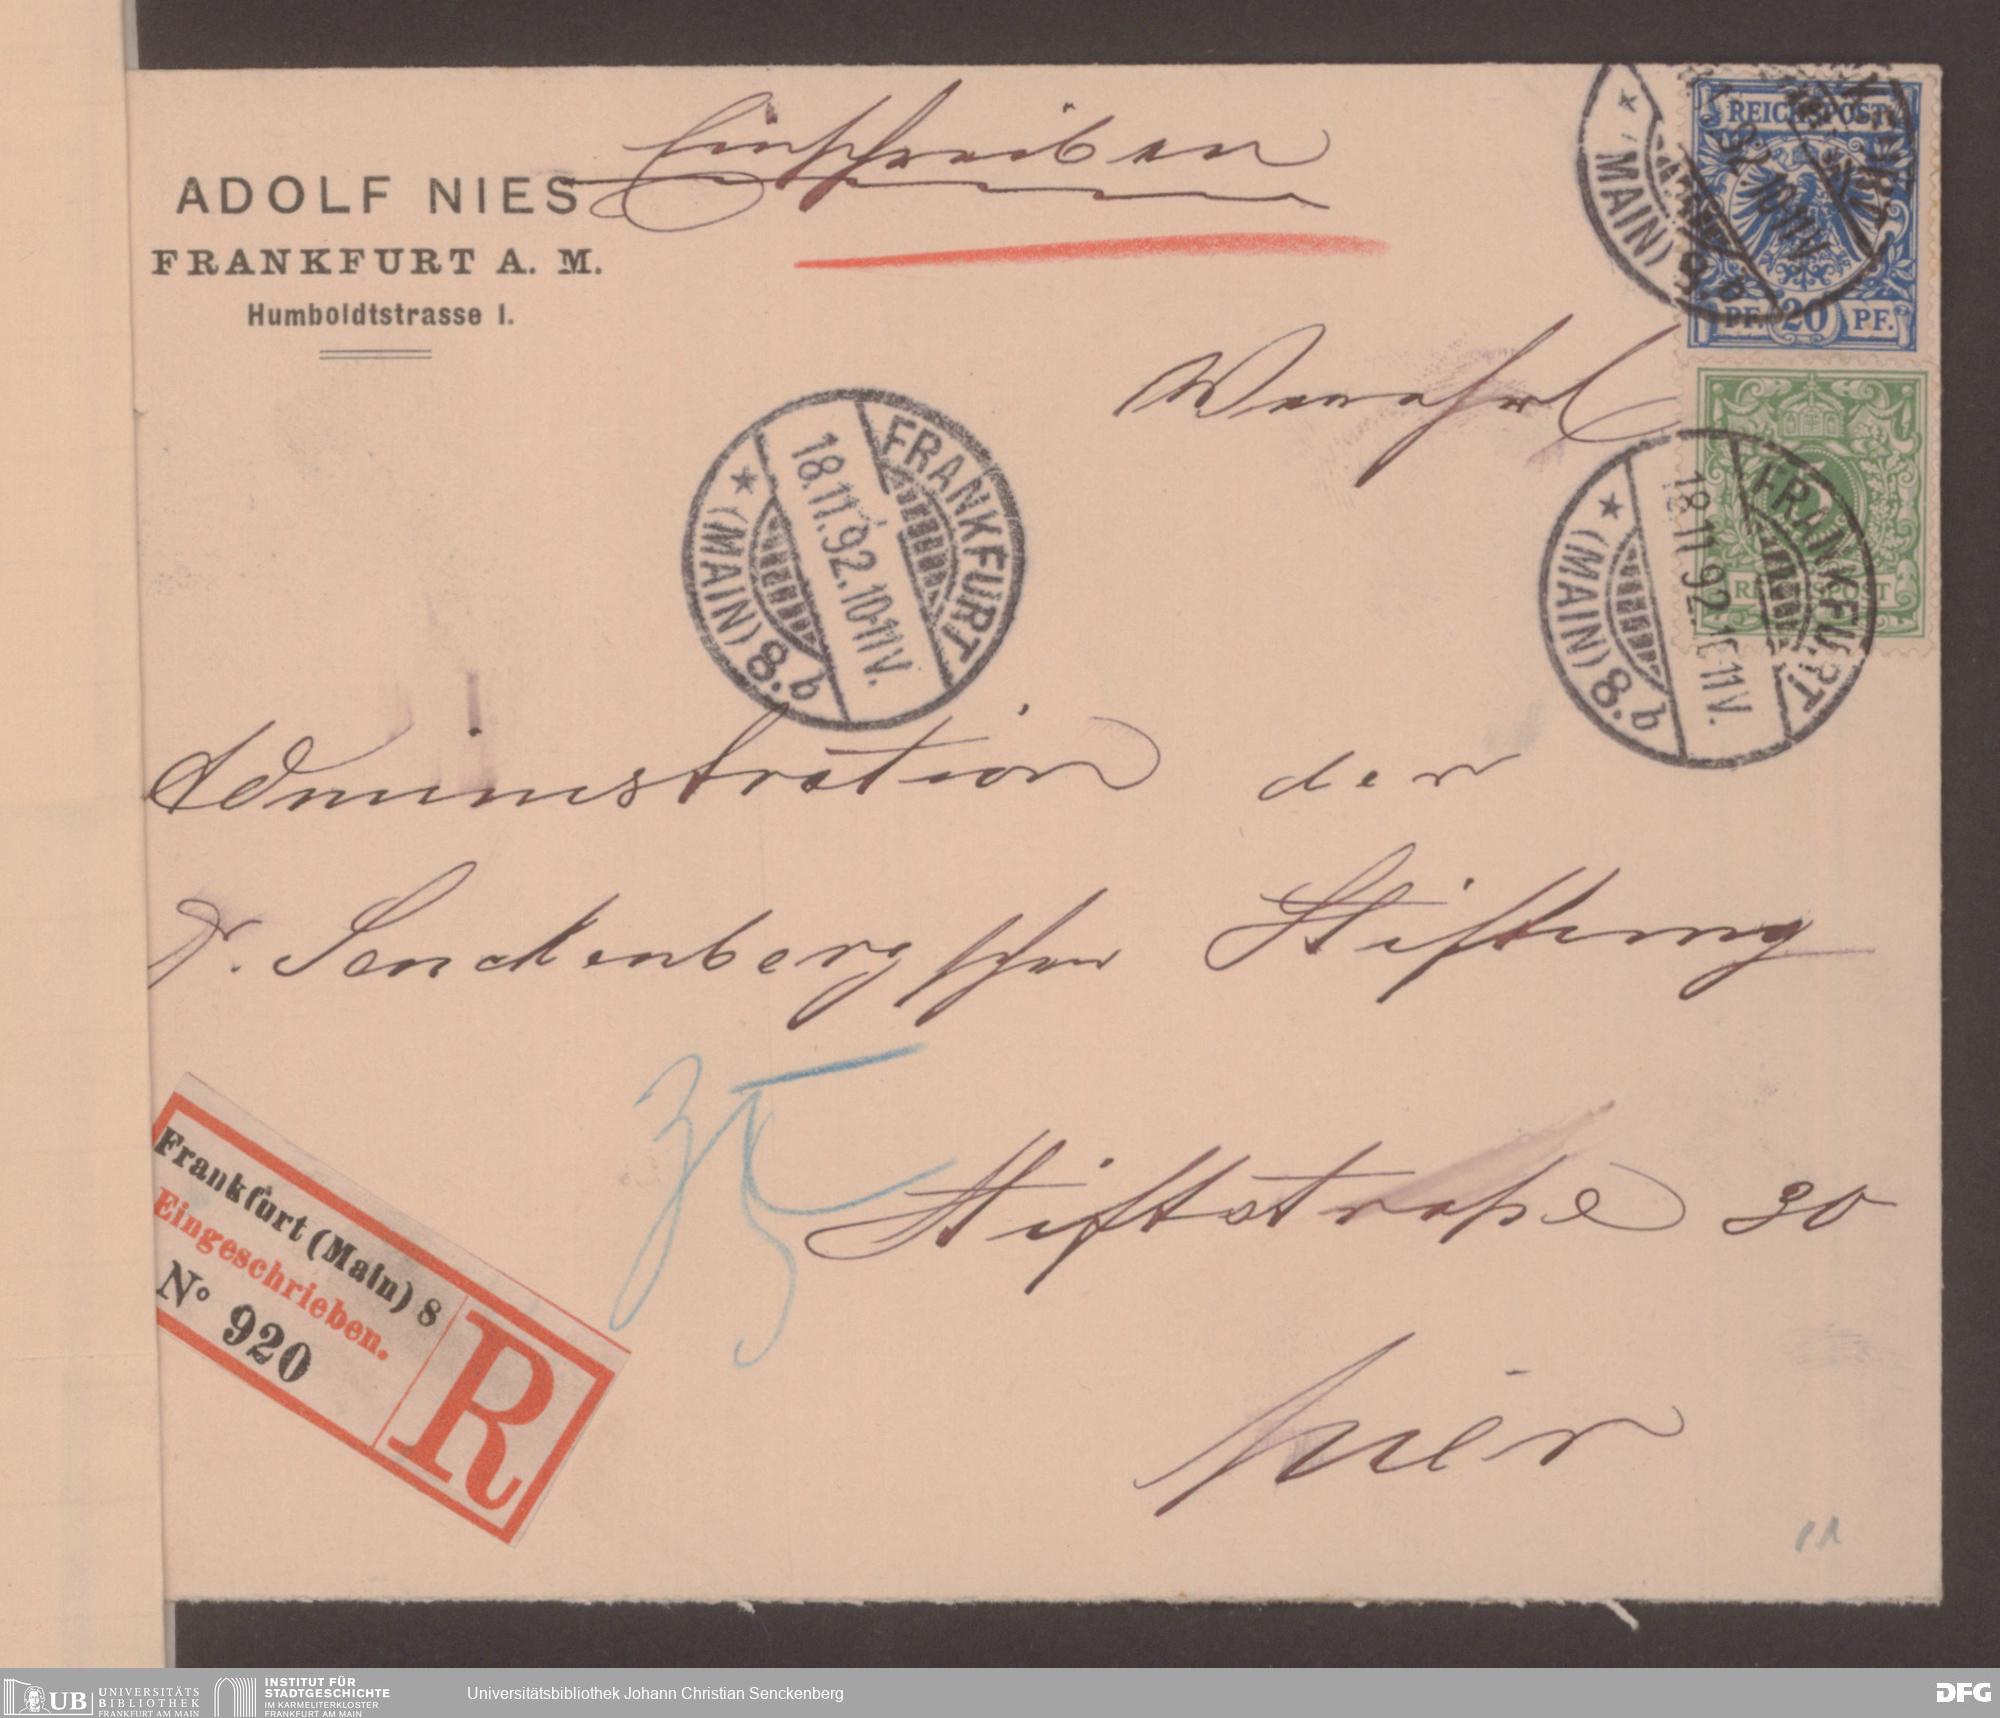 Einschreiben
ADOLF NIES
FRANKFURT A. M.
Humboldtstrasse 1.
REICHSPOST
PF. 20 PF.
(MAIN) 9 b
92. 10-11V.
Wwohrl
FRANKFURT
18.11.92.10-11V.
* (MAIN) 8. b
REICHSPOST
FRANKFURT
18.11.92.10-11V.
* (MAIN) 8. b
Administration der
Dr. Senckenbergschen Stiftung
35
Stiftstraße 30
hier
Frankfurt (Main) 8
Eingeschrieben.
No 920
R
UB UNIVERSITÄTS
BIBLIOTHEK
FRANKFURT AM MAIN
INSTITUT FÜR
STADTGESCHICHTE
IM KARMELITERKLOSTER
FRANKFURT AM MAIN
Universitätsbibliothek Johann Christian Senckenberg
DFG